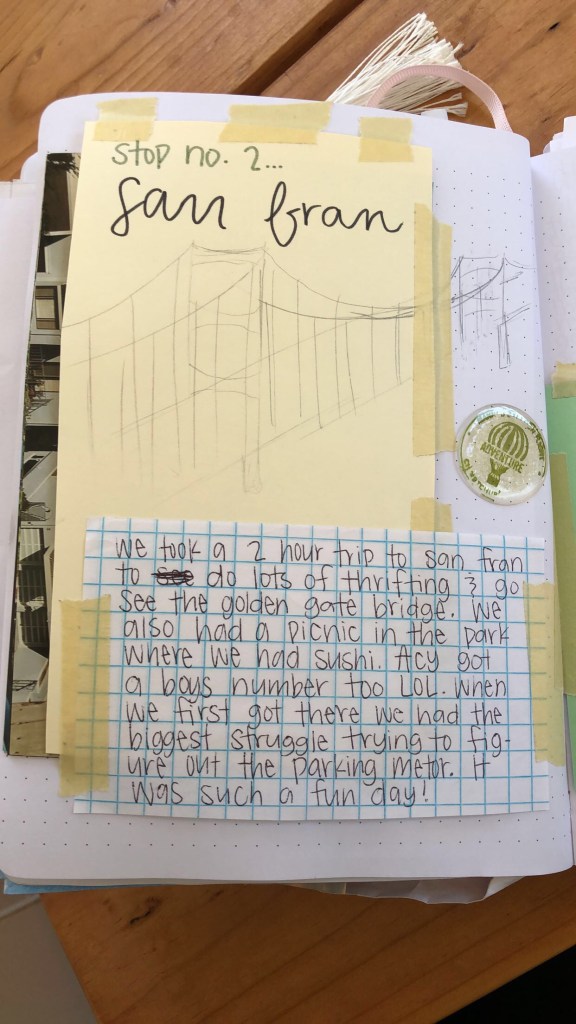 stop no. 2...
San fran
ADVENTURE
We took a 2 hour trip to san fran
to do lots of thrifting & go
See the golden gate bridge. We
also had a picnic in the park
where we had sushi. Acy got
a boys number too LOL. When
we first got there we had the
biggest struggle trying to fig-
ure out the parking metor. It
was such a fun day!